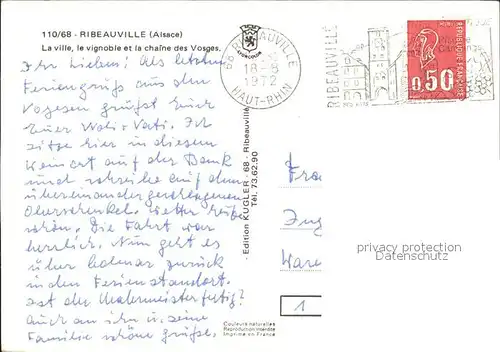 110/68 - RIBEAUVILLE (Alsace)
La ville, le vignoble et la chaîne des Vosges.
Ihr Lieben! Als letzten
Feriengruß aus den
Vogesen grüßt Euch
Euer Vati. Ich
sitze hier in diesem
Weinort auf der Bank
und schreibe auf dem
übereinander geschlagenen
Oberschenkel. Wetter
schön. Die Fahrt war
herrlich. Nun geht es
über zurück
in den Ferienstandort.
Ist der Malermeister fertig?
Auch an ihn u. seine
Familie schöne Grüße.
- Edition KUGLER - 68 - Ribeauvillé
Tél. 73.62.90
Couleurs naturelles
Reproduction interdite
Imprimé en France
68 RIBEAUVILLE
1972
HAUT-RHIN
RIBEAUVILLE
REPUBLIQUE FRANCAISE
0,50
Fra
Ware
1
privacy protection
DELCAMPE